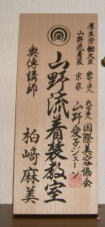 厚生労働大臣認可
社団法人 国際美容協会
山野流着装 宗家 山野愛子ジェーン
山野流着装教室
奥傳講師
柏崎麻美